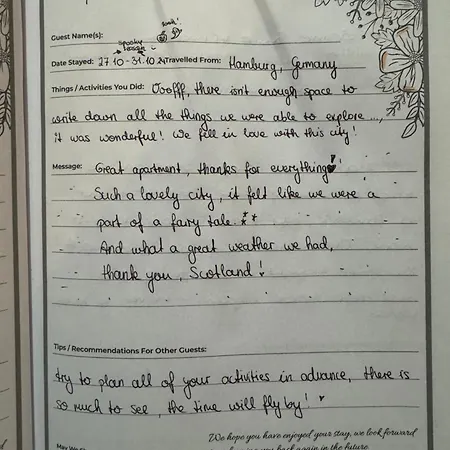 Guest Name(s):
spooky
season
Date Stayed: 27.10 - 31.10.24 Travelled From: Hamburg, Germany
Things / Activities You Did: Ooofff, there isn't enough space to
write down all the things we were able to explore ...,
it was wonderful! We fell in love with this city!
Message: Great apartment, thanks for everything!
Such a lovely city, it felt like we were a
part of a fairy tale.
And what a great weather we had,
thank you, Scotland!
Tips / Recommendations For Other Guests:
try to plan all of your activities in advance, there is
so much to see, the time will fly by!
We hope you have enjoyed your stay, we look forward
you back again in the future.